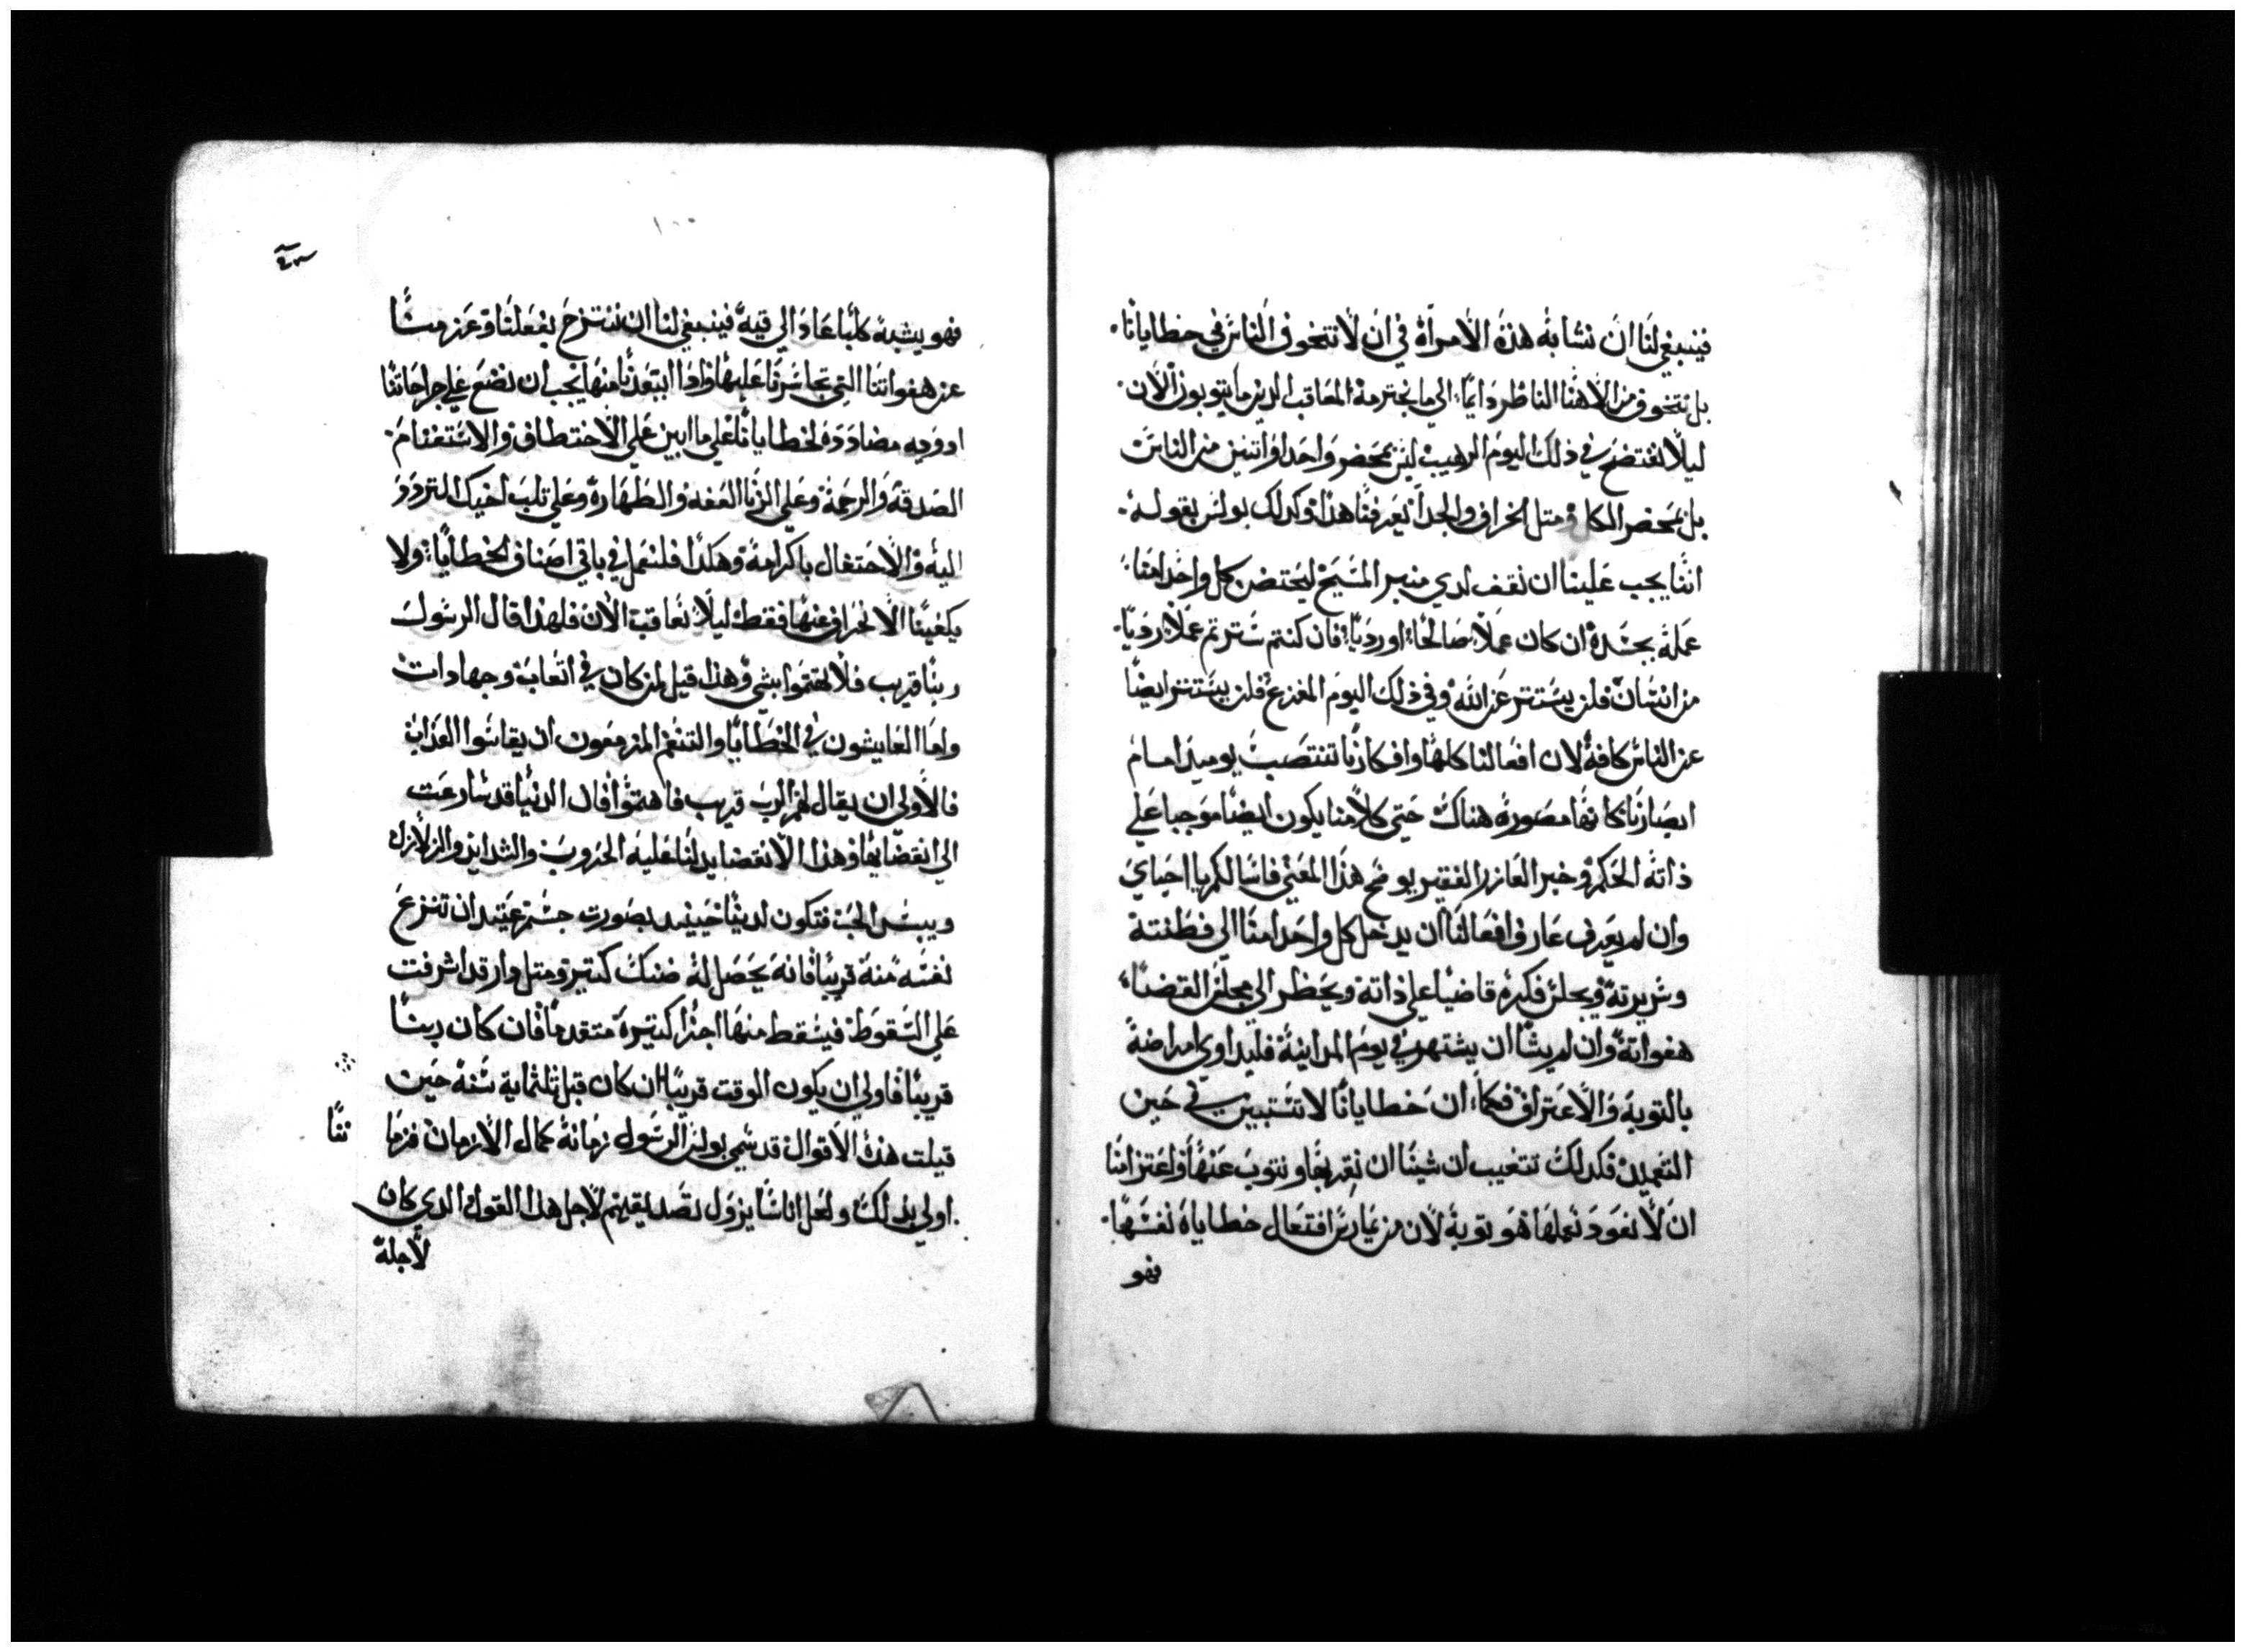 فينبغي لنا ان نشابه هذه الامراة في ان لا نتخوف الناس في خطايانا.
بل نتخوف من الاهنا الناظر دايما الى ما نجترمه المعاقب الدين ما يتوبوز الان.
ليلا نفتضح في ذلك اليوم الرهيب ليس بمحضر واحد او اتنين من الناس
بل بمحضر الكل ومتل الخراف والجدا نعرفنا هدا وكدلك بولس بقوله.
اننا يجب علينا ان نقف لدي منبر المسيح ليختص كل واحد منا
عمله بجسده ان كان عملا صالحا اورديا فان كنتم سترتم عملا رديا.
من انسان فلن يستتر عن الله وفي ذلك اليوم المفزع فلن يستتر ايضا
عن الناس كافة لان افعالنا كلها وافكارنا تنتصب يوميد امام
ابصارنا كانها مصورة هناك حتي كلا منا يكون ايضا موجبا علي
ذاته الحكم وخبر العازر الفقير يوضح هذا المعني فاسالكم يا احباي
وان لم يعرف عارف افعالنا ان يدخل كل واحد منا الي فطنته
وسريرته ويجلس فكره قاضيا علي ذاته ويحظر الي مجلس القضا
هفواته وان لم يشا ان يشتهر في يوم المداينة فليداوي امراضه
بالتوبة والاعتراف فكما ان خطايانا لا تستبين في حين
التعميد فكدلك تتغيب ان شينا ان نقر بها ونتوب عنها واعتزامنا
ان لا نعود نعملها هو توبة لان من يمارس افتعال خطاياه نفسها.
فهو
١٠٠
فهو يشبه كلبا عاد الي قيه فينبغي لنا ان ننتزح بفعلنا وعزمنا
عن هفواتنا التي تجاسرنا عليها واذا ابتعدنا منها يجب ان نضع علي جراحاتنا
ادويه مضاددة لخطايانا علي ما ابين علي الاختطاف والاستغنام.
الصدقة والرحمة وعلي الزنا العفه والطهارة وعلي تلب اخيك التردد
اليه والاحتفال باكرامه وهكذا فلنعمل في باقي اصناف الخطايا ولا
يكفينا الانحراف عنها فقط ليلا نعاقب الان فلهذا قال الرسول
ربنا قريب فلا تهتموا بشي وهذا قيل لمن كان في اتعاب وجهادات
واما العايشون في الخطايا والتنعم المزمعون ان يقاسوا العذاب
فالاولي ان يقال لهم الرب قريب فاهتموا فان الدنيا قد سارعت
الي انقضايها وهذا الانقضا يدلنا عليه الحروب والشدايد والزلازل
ويبس الحب فتكون لدينا حينيد بصورت جسم عتيد ان تنزع
نفسه منه قريبا فانه يحصل له ضنك كتير ومتل دار قد اشرفت
علي السقوط فيسقط منها اجزا كتيرة متقدما فان كان ربنا
قريبا فاولي ان يكون الوقت قريبا ان كان قبل تلتماية سنة حين
قيلت هذه الاقوال قد سمي بولس الرسول زمانه كمال الازمان فزما
ننا
اولي بدلك ولعل اناسا يزول تصديقهم لاجل هدا القول الدي كان
لاجله